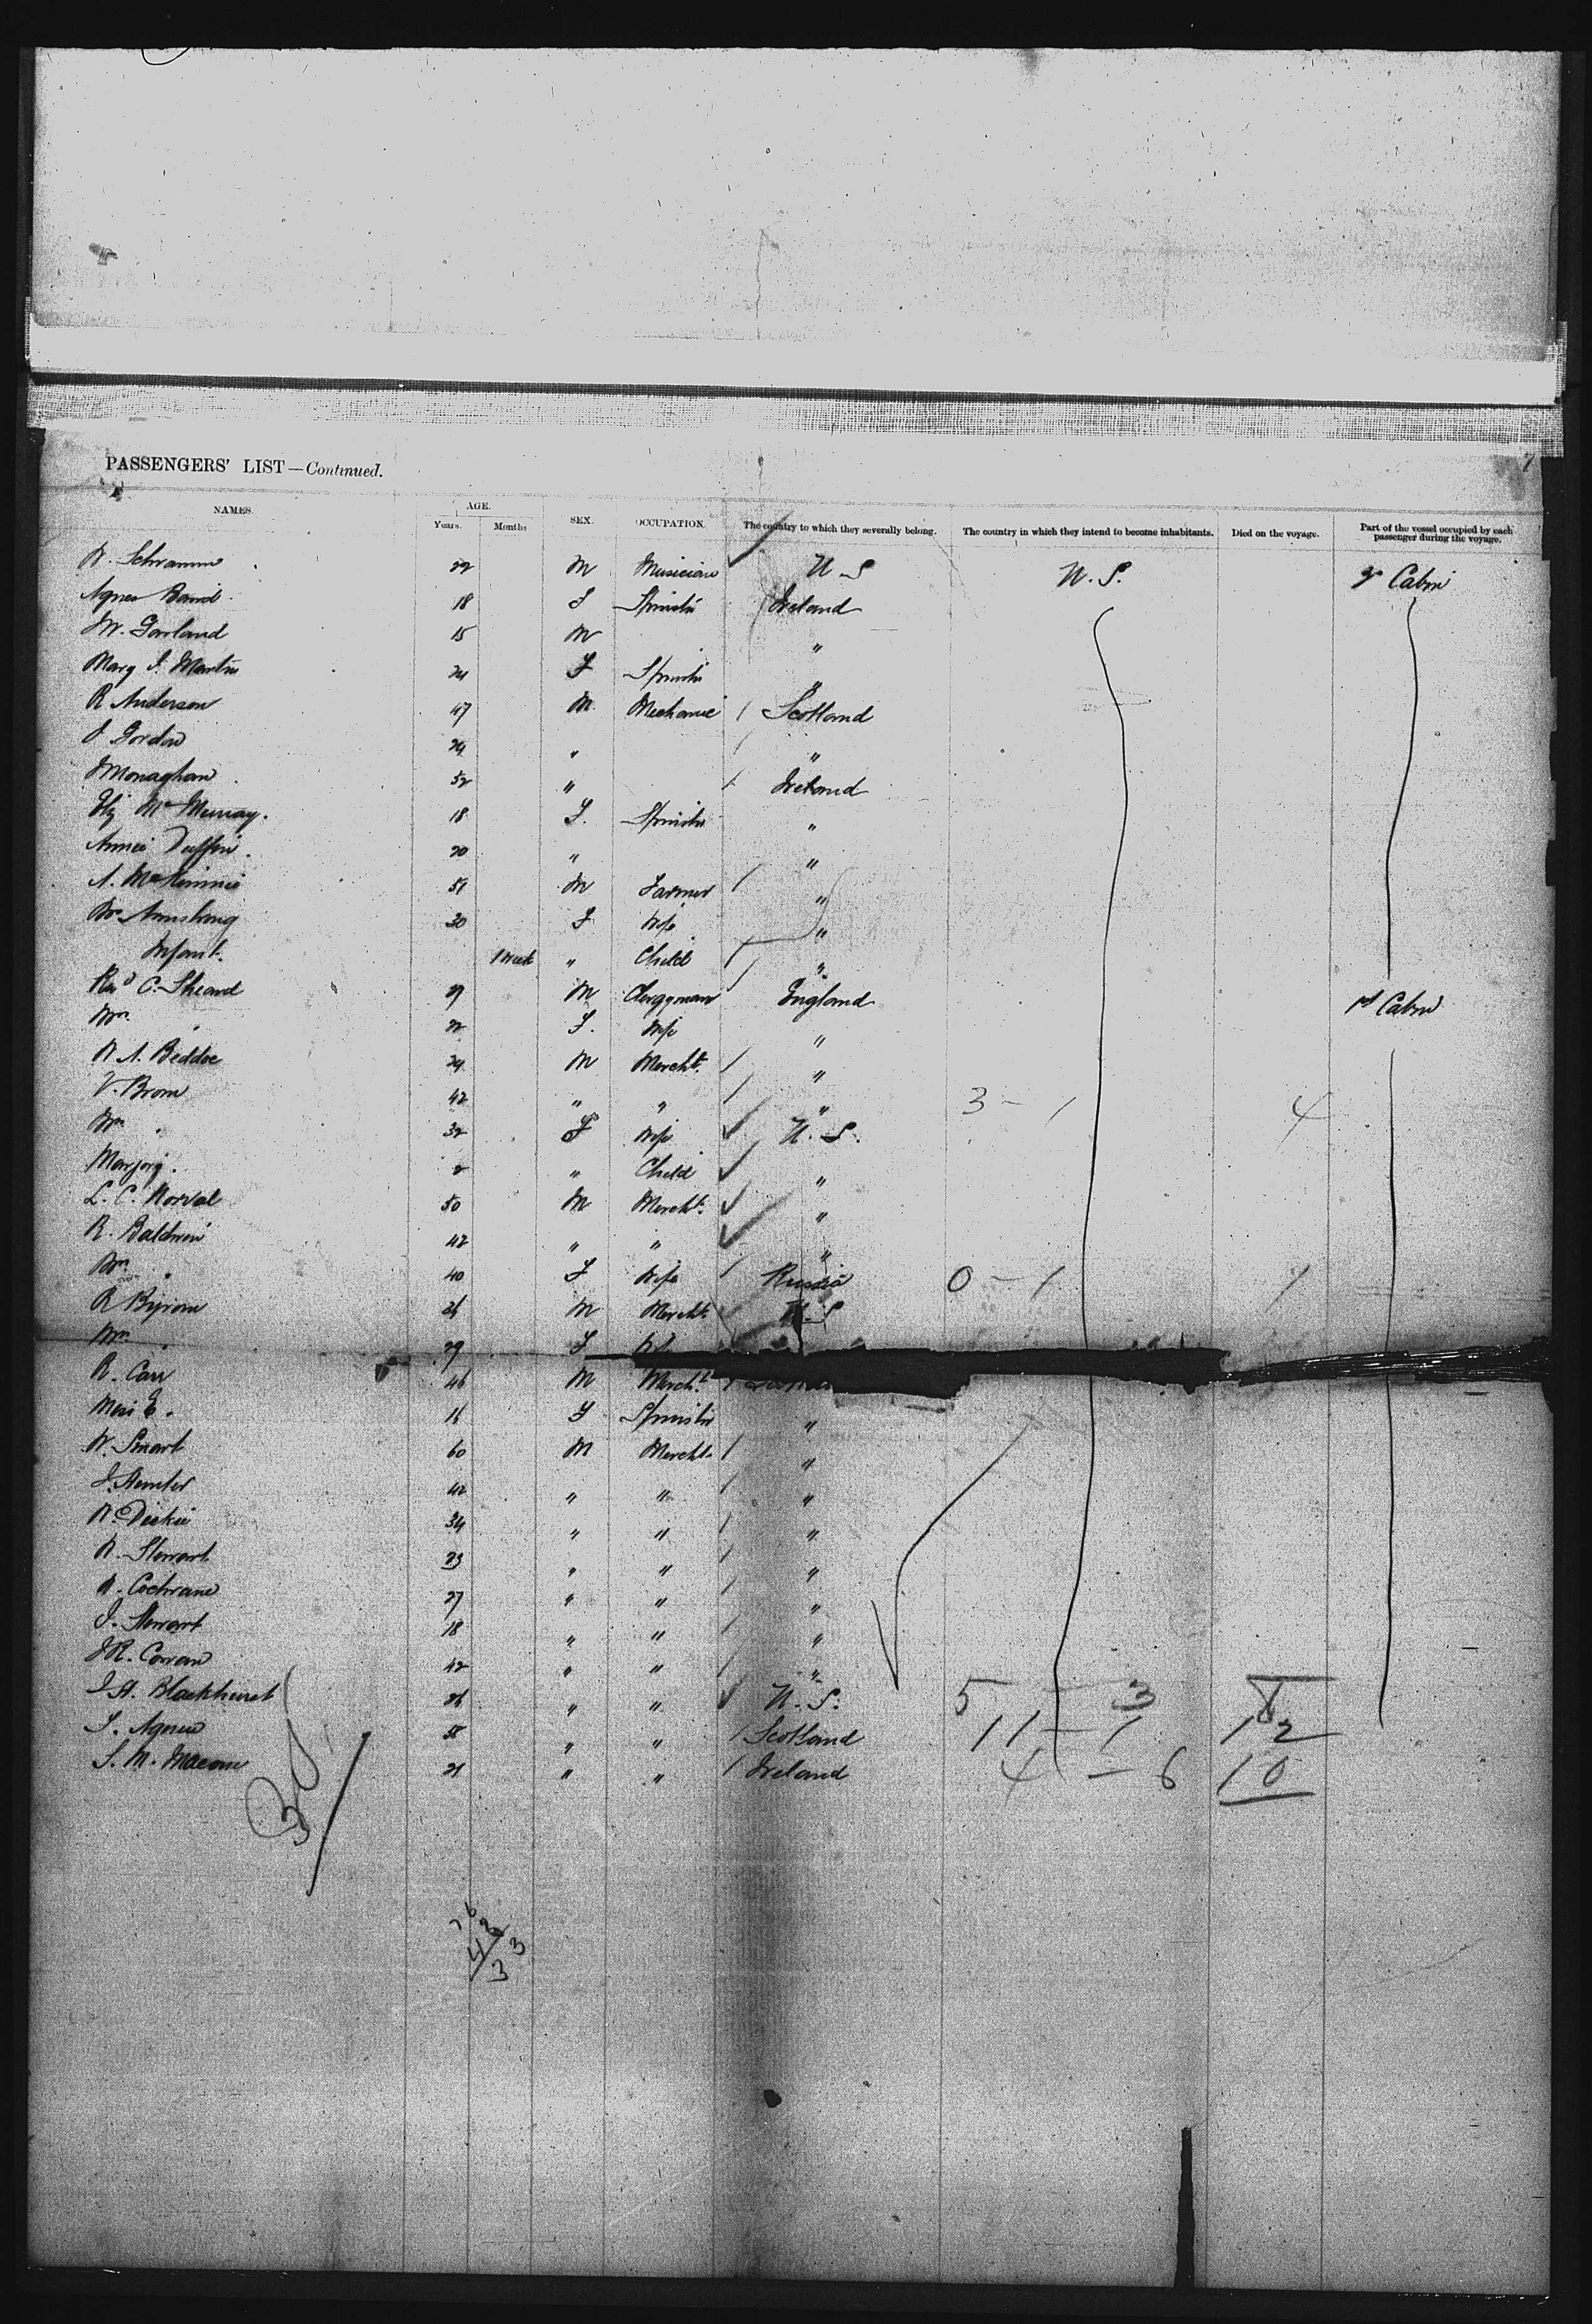 7
PASSENGERS' LIST—Continued.
NAMES. AGE. Years. Months SEX. OCCUPATION. The country to which they severally belong. The country in which they intend to become inhabitants. Died on the voyage. Part of the vessel occupied by each passenger during the voyage.
W. Schramm 22 M Musician U.S U.S. 2 Cabin
Agnes Baird 18 F Spinster Ireland
W. Garland 15 M "
Marg J. Martin 24 F Spinster "
R Anderson 47 M Mechanic Scotland
J Gordon 24 " "
J Monaghan 52 " Ireland
Eliz McMurray. 18 F. Spinster "
Annie Duffin 20 " "
A. McKinnie 51 M Farmer "
Mrs Armstrong 30 F Wife "
Infant. 1 Week " Child "
Revd C. Sheard 29 M Clergyman England 1st Cabin
Mrs " 22 F. Wife "
W A. Beddoe 24 M Mercht. "
V. Brown 42 " " " 3 - 1 4
Mrs " 32 F Wife U.S.
Marjory 2 " Child "
L. C. Norval 50 M Mercht. "
R. Baldwin 42 " " "
Mrs " 40 F Wife Russia 0 - 1 1
R Byrom 26 M Mercht. U.S
Mrs " 29 F
R. Carr 46 M Mercht.
Miss E. " 16 F Spinster "
W. Smart 60 M Mercht. "
J. Hunter 42 " " "
W. Dickie 34 " " "
W. Stewart 23 " " "
A. Cochrane 27 " " "
J. Stewart 18 " " "
J R. Cowan 42 " " "
J. A. Blackhurst 26 " " U.S. 5 - 3 8
S. Agnew 55 " " Scotland 11 - 1 12
S. M. 21 " " Ireland 4 - 6 10